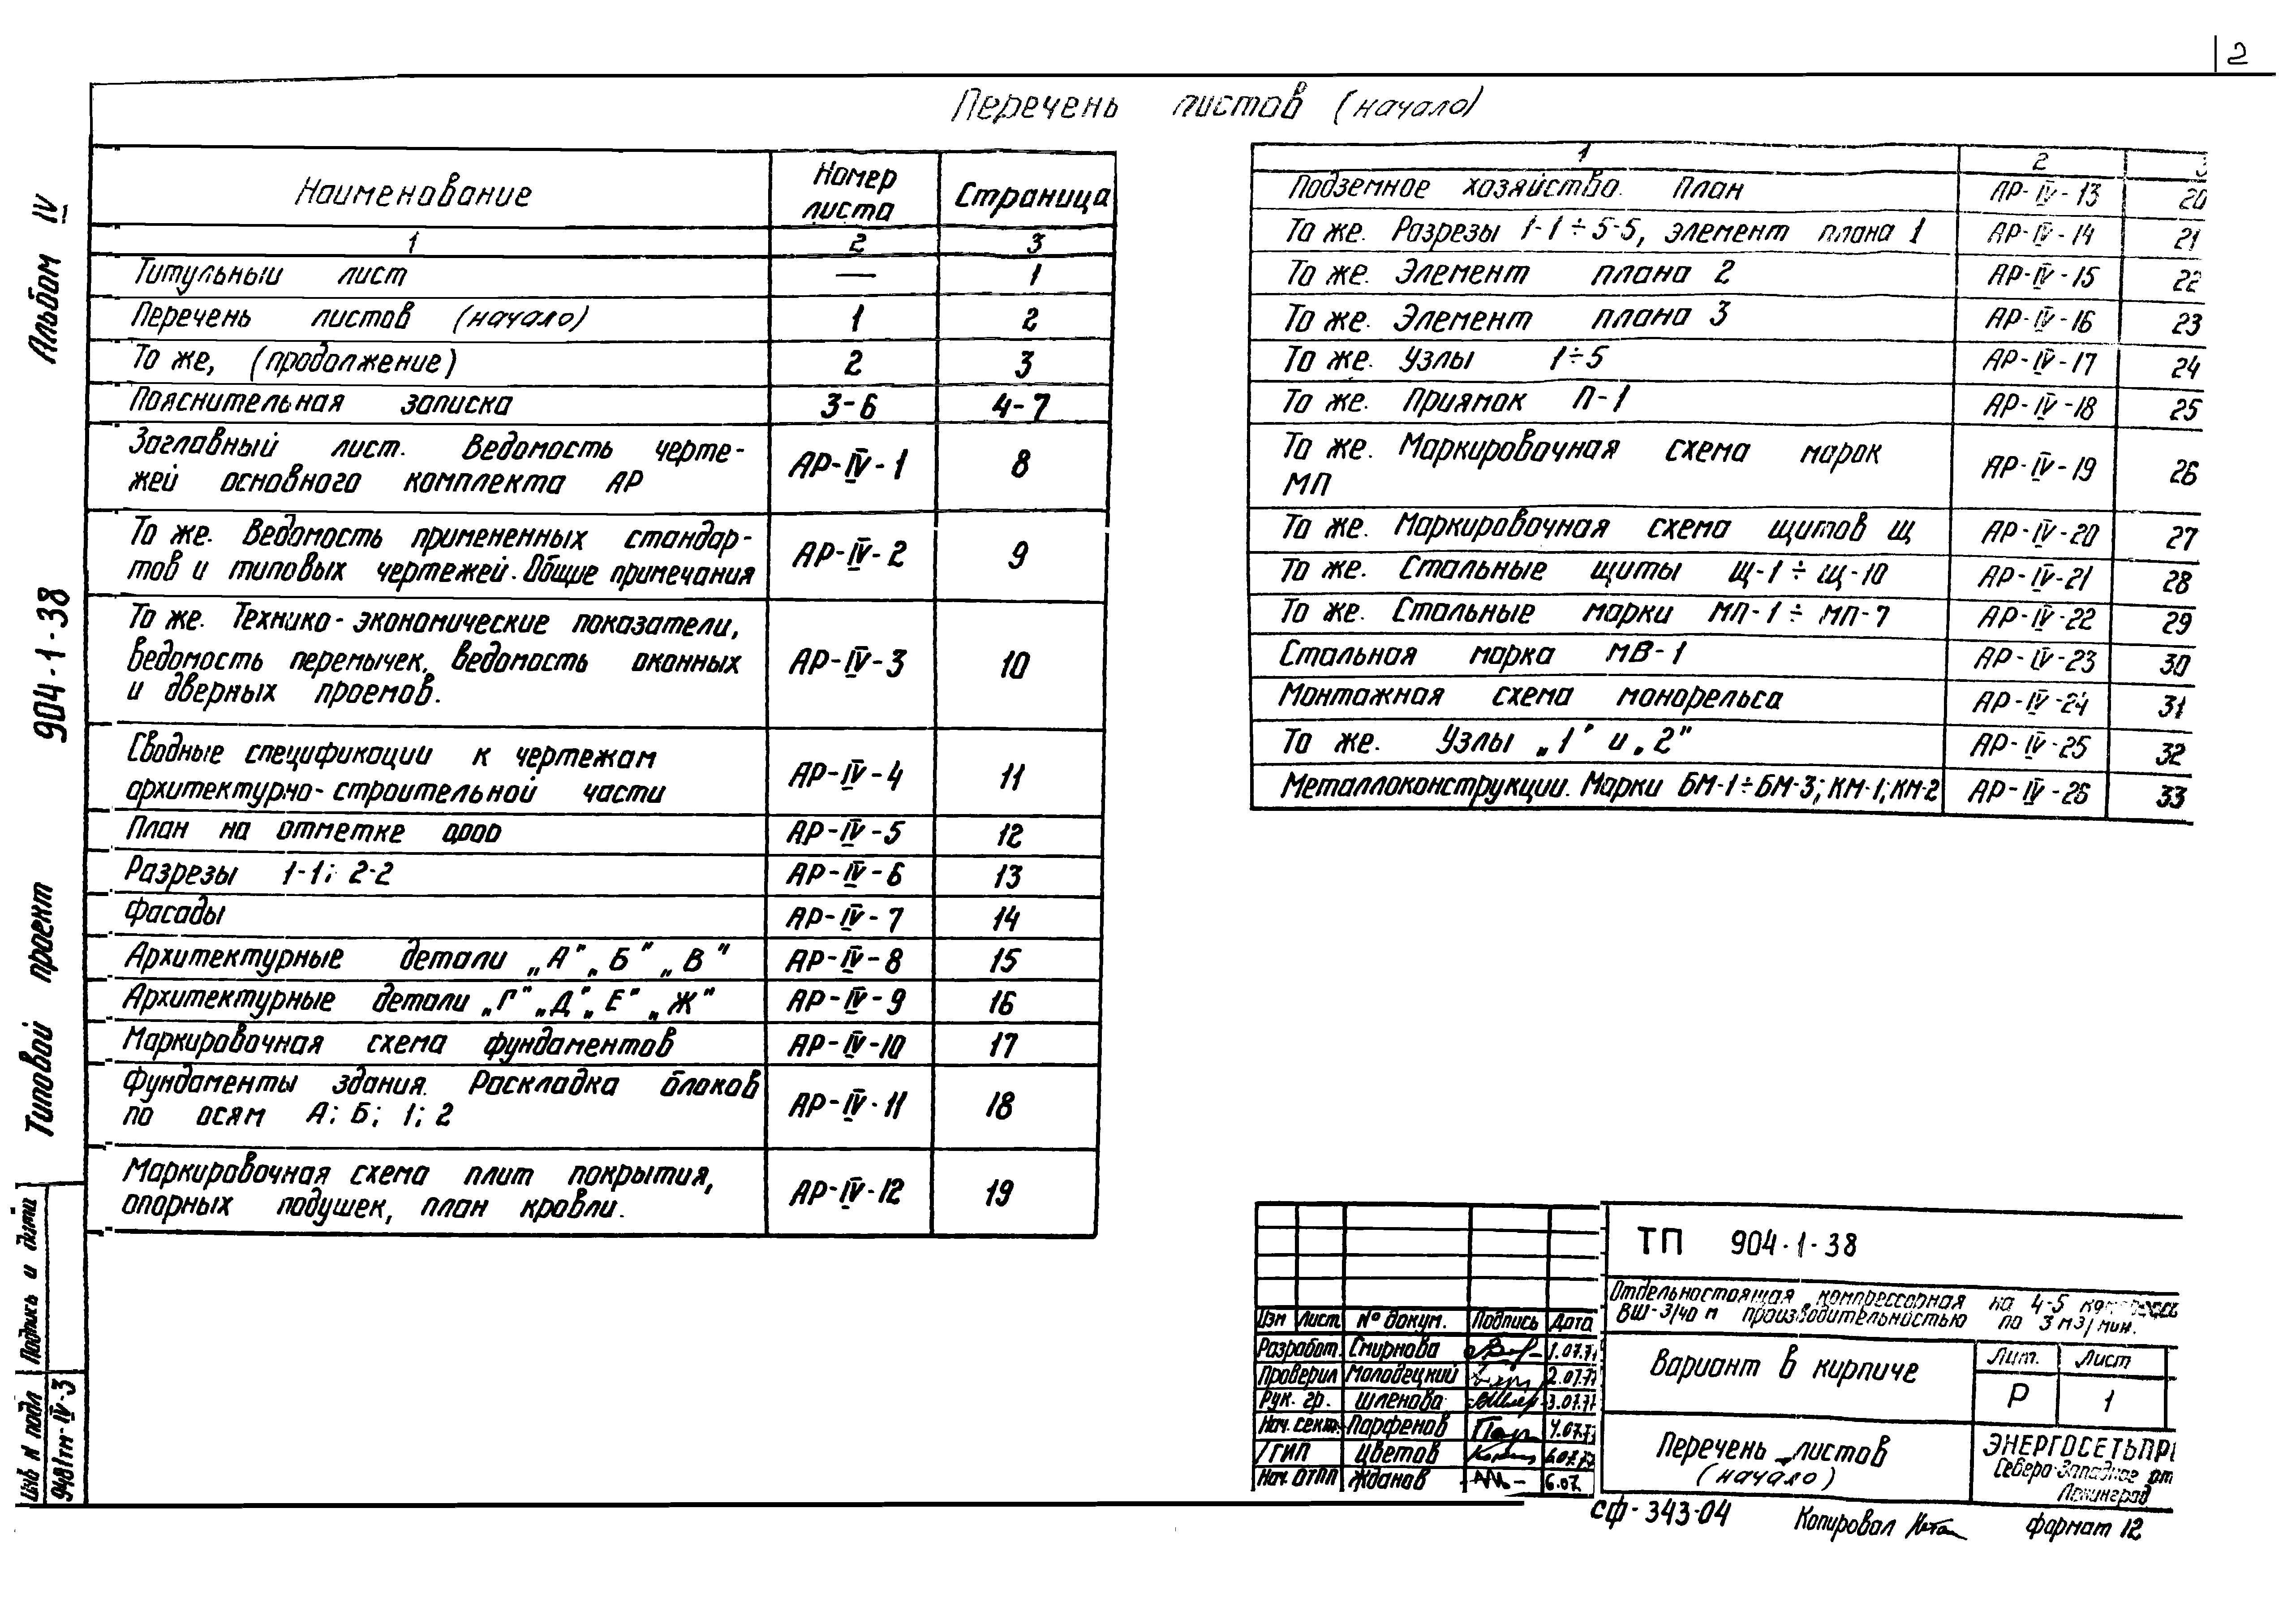 2
Перечень листов (начало)
Альбом IV
904-1-38
Типовой проект
Подпись и дата
Инв N подл
9481тм-IV-3
Наименование Номер листа Страница
1 2 3
Титульный лист — 1
Перечень листов (начало) 1 2
То же, (продолжение) 2 3
Пояснительная записка 3-6 4-7
Заглавный лист. Ведомость черте-
жей основного комплекта АР АР-IV-1 8
То же. Ведомость примененных стандар-
тов и типовых чертежей. Общие примечания АР-IV-2 9
То же. Технико-экономические показатели,
ведомость перемычек, ведомость оконных АР-IV-3 10
и дверных проемов.
Сводные спецификации к чертежам
архитектурно-строительной части АР-IV-4 11
План на отметке 0,000 АР-IV-5 12
Разрезы 1-1; 2-2 АР-IV-6 13
Фасады АР-IV-7 14
Архитектурные детали „А" „Б" „В" АР-IV-8 15
Архитектурные детали „Г" „Д" „Е" „Ж" АР-IV-9 16
Маркировочная схема фундаментов АР-IV-10 17
Фундаменты здания. Раскладка блоков
по осям А; Б; 1; 2 АР-IV-11 18
Маркировочная схема плит покрытия,
опорных подушек, план кровли. АР-IV-12 19
1 2 3
Подземное хозяйство. План АР-IV-13 20
То же. Разрезы 1-1÷5-5, элемент плана 1 АР-IV-14 21
То же. Элемент плана 2 АР-IV-15 22
То же. Элемент плана 3 АР-IV-16 23
То же. Узлы 1÷5 АР-IV-17 24
То же. Приямок П-1 АР-IV-18 25
То же. Маркировочная схема марок
МП АР-IV-19 26
То же. Маркировочная схема щитов Щ АР-IV-20 27
То же. Стальные щиты Щ-1÷Щ-10 АР-IV-21 28
То же. Стальные марки МП-1÷МП-7 АР-IV-22 29
Стальная марка МВ-1 АР-IV-23 30
Монтажная схема монорельса АР-IV-24 31
То же. Узлы „1" и „2" АР-IV-25 32
Металлоконструкции. Марки БМ-1÷БМ-3; КМ-1; КМ-2 АР-IV-26 33
ТП 904-1-38
Отдельностоящая компрессорная на 4-5
ВШ-3/40 м производительностью по 3 м3/мин.
Изм Лист № докум. Подпись Дата
Разработ. Смирнова 1.07.77
Проверил Молодецкий 2.07.77
Рук. гр. Шленова 3.07.77
Нач. сект. Парфенов 4.07.77
ГИП Цветов
Нач. ОТПП Жданов 6.07.
Вариант в кирпиче
Лит. Лист
Р 1
Перечень листов
(начало)
ЭНЕРГОСЕТЬПР
Северо-Западное от
Ленинград
сф-343-04 Копировал формат 12